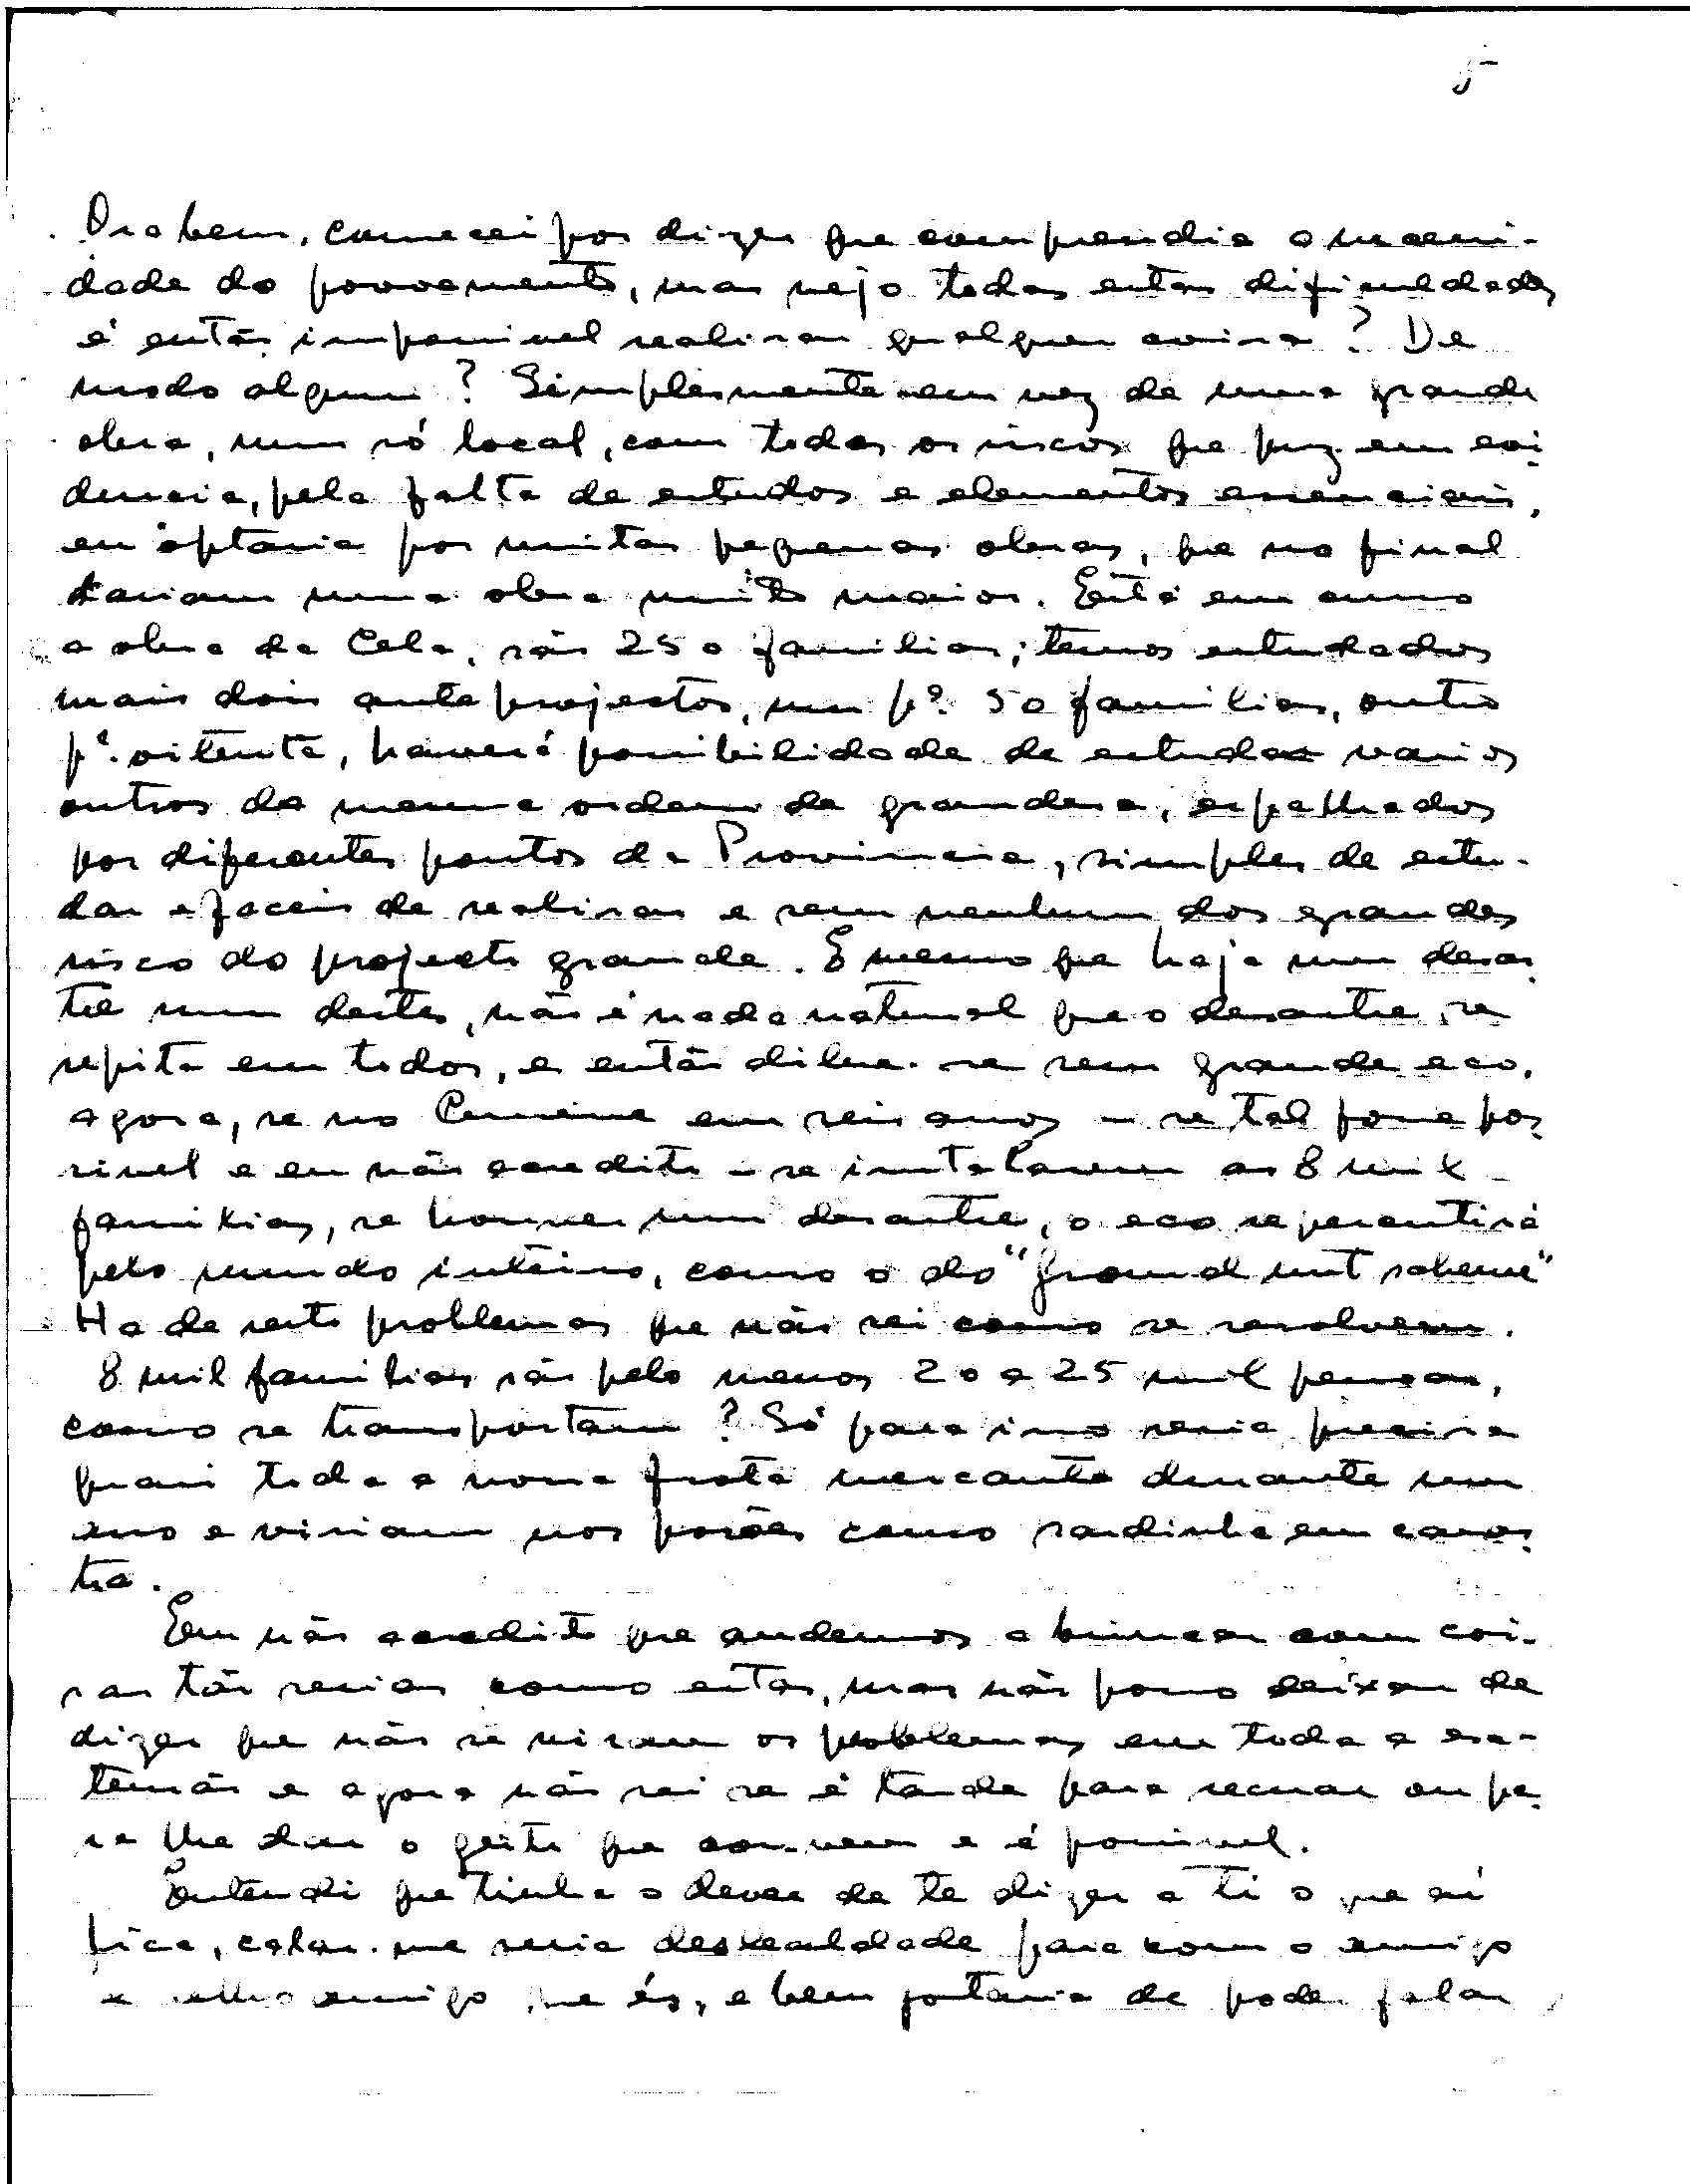 5
Ora bem, comecei por dizer que compreendia a necessi-
dade do povoamento, mas vejo todas estas dificuldades
é então impossivel realisar qualquer coisa? De
modo algum? Simplesmente em vez de uma grande
obra, num só local, com todos os riscos que puz em evi-
dencia, pela falta de estudos e elementos essenciais,
eu optaria por muitas pequenas obras, que no final
dariam uma obra muito maior. Está em curso
a obra da Cela, são 250 familias; temos estudados
mais dois anteprojectos, um pª. 50 familias, outro
pª. oitenta, haverá possibilidade de estudar varios
outros da mesma ordem de grandesa, espalhados
por diferentes pontos da Provincia, simples de estu-
dar e faceis de realisar e sem nenhum dos grandes
risco do projecto grande. E mesmo que haja um desas-
tre num destes, não é nada natural que o desastre se
repita em todos, e então dilue-se sem grande eco.
Agora, se no Cunene em seis anos - se tal fosse pos-
sivel e eu não acredito - se instalarem as 8 mil
familias, se houver um desastre, o eco repercutirá
pelo mundo inteiro, como o do "ground nut scheme"
Ha de resto problemas que não sei como se resolvem.
8 mil familias são pelo menos 20 a 25 mil pessoas,
como se transportam? Só para isso seria precisa
quasi toda a nossa frota mercante durante um
ano e viriam nos porões como sardinha em canas-
tra.
Eu não acredito que andemos a brincar com coi-
sas tão serias como estas, mas não posso deixar de
dizer que não se viram os problemas em toda a ex-
tensão e agora não sei se é tarde para recuar ou pa-
ra lhe dar o geito que convem e é possivel.
Entendi que tinha o dever de te dizer a ti o que aí
fica, calar-me seria deslealdade para com o amigo
e velho amigo que és, e bem gostaria de poder falar